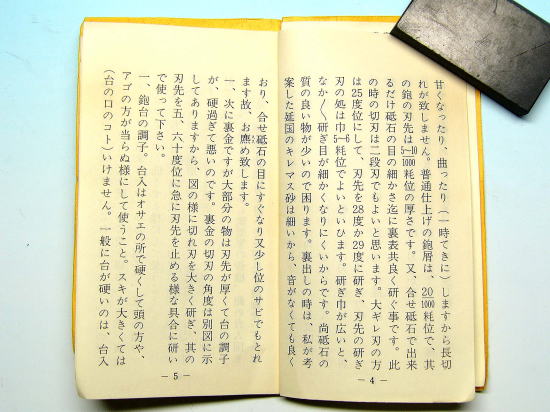 甘くなったり、曲ったり(一時てきに)しますから長切
れが致しません。普通仕上げの鉋屑は、20/1000粍位で、其
の鉋の刃先は5—10/1000粍位の厚さです。又、合せ砥石で出来
るだけ砥石の目の細かさ迄に裏表共良く研ぐ事です。此
の時の切刃は二段刃でもよいと思います。大ギレ刃の方
は25度位にして、刃先を28度か29度に研ぎ、刃先の研ぎ
刃の処は巾5—6粍位でよいといひます。研ぎ巾が広いと、
なか〳〵研ぎ目が細かくなりにくいからです。尚砥石の
質の良い物が少いので困ります。裏出しの時は、私が考
案した延国のキレマス砂は細いから、音がなくても良く
— 4 —
おり、合せ砥石の目にすぐなり又少し位のサビでもとれ
ます故、お薦め致します。
一、次に裏金ですが大部分の物は刃先が厚くて台の調子
が、硬過ぎて悪いのです。裏金の切刃の角度は別図に示
してありますから、図の様に切れ刃を大きく研ぎ、其の
刃先を五、六十度位に急に刃先を止める様な具合に研い
で使って下さい。
一、鉋台の調子。台入はオサエの所で硬くして頭の方や、
アゴの方が当らぬ様にして使うこと。スキが大きくては
(台の口のコト)いけません。一般に台が硬いのは、台入
— 5 —